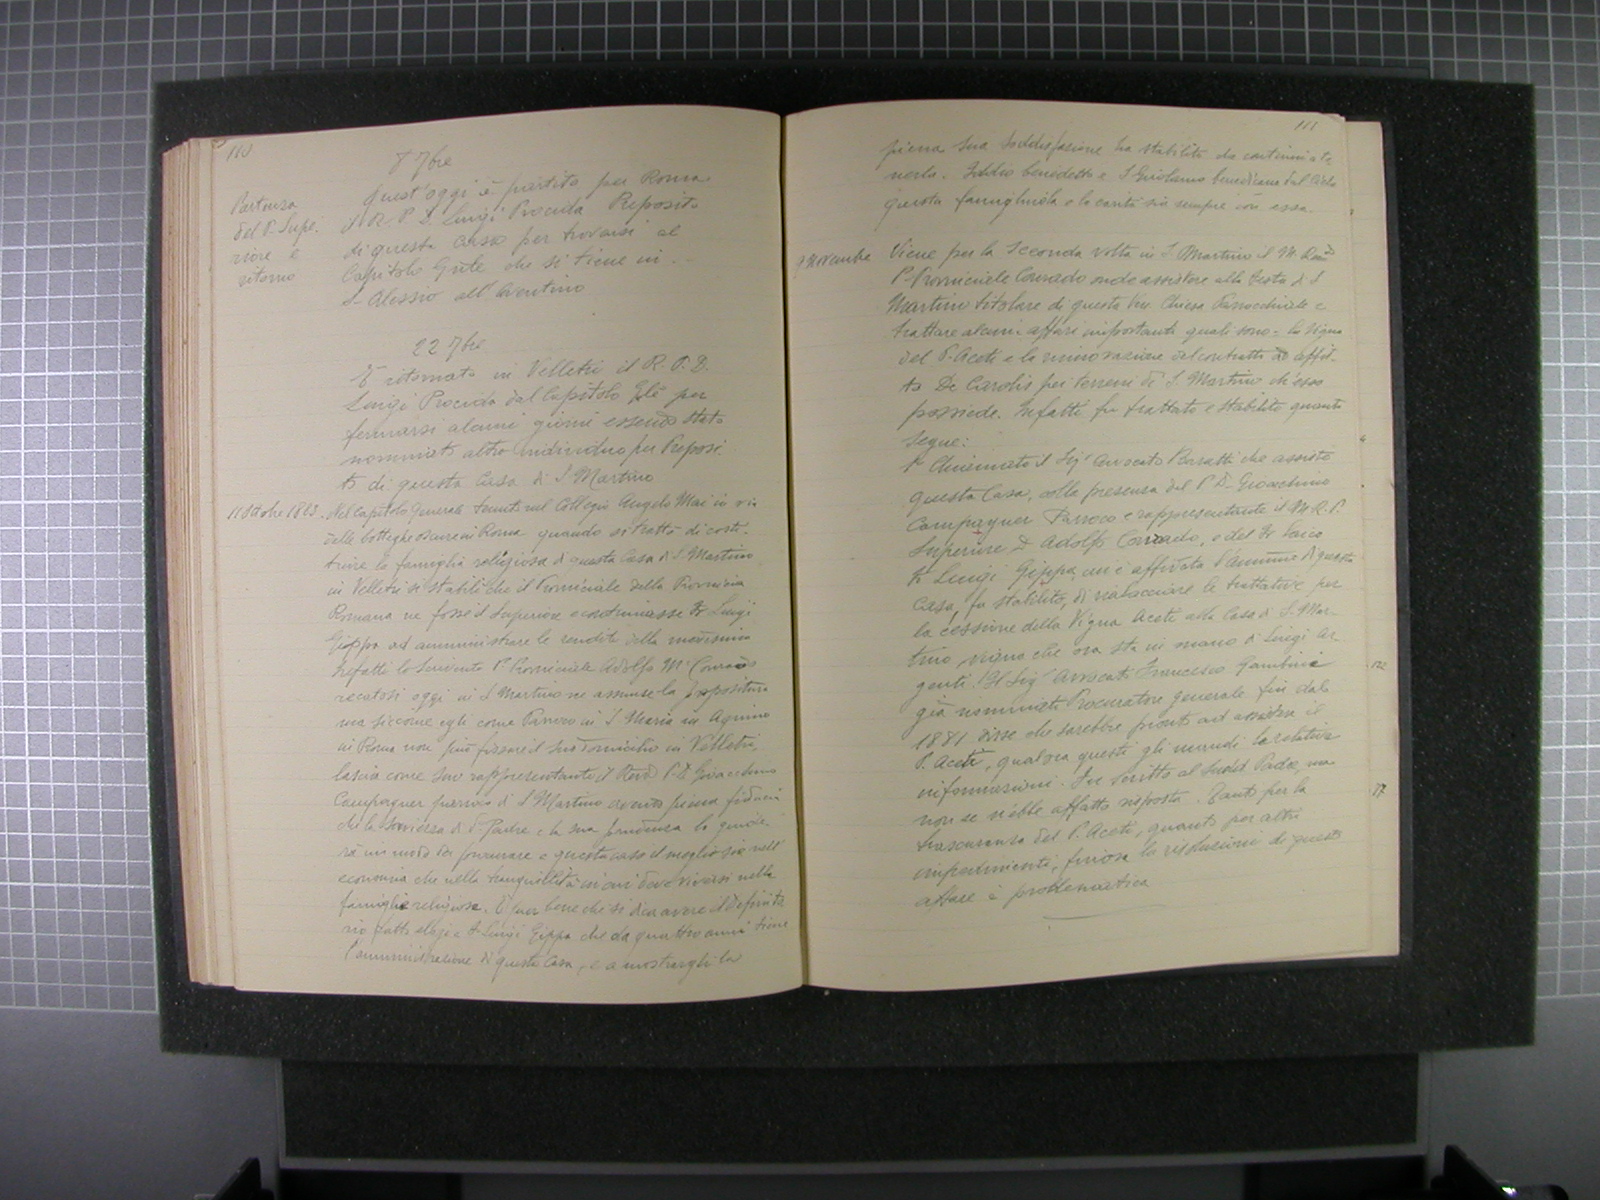 110
8 7bre
Partenza
del P. Supe.
riore e
ritorno
Quest'oggi è partito per Roma
il R. P. D. Luigi Procida Preposito
di questa casa per trovarsi al
Capitolo Gnle che si tiene in
S. Alessio all'Aventino
22 7bre
È ritornato in Velletri il R. P. D.
Luigi Procida dal Capitolo Gnle per
fermarsi alcuni giorni essendo stato
nominato altro individuo per Preposi
to di questa Casa di S. Martino
11 Ottobre 1883. Nel capitolo Generale tenuto nel Collegio Angelo Mai in via
delle botteghe oscure in Roma quando si trattò di costi.
tuire la famiglia religiosa di questa Casa di S. Martino
in Velletri si stabilì che il Provinciale della Provincia
Romana ne fosse il Superiore e continuasse Fr Luigi
Gippa ad amministrare le rendite della medesima
Infatti lo scrivente Pr Provinciale Adolfo Mr Conrado
recatosi oggi in S Martino ne assunse la prepositura
ma siccome egli come Parroco in S Maria in Aquiro
in Roma non può fissare il suo domicilio in Velletri,
lascia come suo rappresentante il Revd P. D. Gioacchino
Campagner parroco di S Martino avendo piena fiducia
che la saviezza di do Padre e la sua prudenza lo guide.
rà in modo da procurare a questa casa il meglio sia nell'
economia che nella tranquillità in cui deve viversi nella
famiglia religiosa. È pur bene che si dica avere il Definito
rio fatto elogi a Fr Luigi Gippa che da quattro anni tiene
l'amministrazione di questa Casa, e a mostrargli la
111
piena sua soddisfazione ha stabilito da continuate
nerlo. Iddio benedetto e S Girolamo benedicano dal Cielo
questa famigliuola e la carità sia sempre con essa.
9 Novembre Viene per la seconda volta in S. Martino il M. Rndo
P. Provinciale Conrado onde assistere alla festa di S
Martino titolare di questa Ven. Chiesa Parrocchiale e
trattare alcuni affari importanti quali sono = la Vigna
del P. Aceti e la rinnovazione del contratto di affit.
to De Carolis pei terreni di S. Martino ch'esso
possiede. Infatti fu trattato e stabilito quanto
segue:
1º Chiamato il Sigr Avvocato Baratti che assiste
questa Casa, colla presenza del P. D. Gioacchino
Campagner Parroco e rappresentante il M. R. P.
Superiore D. Adolfo Conrado, e del Fr laico
Fr Luigi Gippa, cui è affidata l'ammne di questa
Casa, fu stabilito, di riallacciare le trattative per
la cessione della Vigna Aceti alla Casa di S. Mar-
tino, vigna che ora sta in mano di Luigi Ar
genti. Il Sigr Avvocato Francesco Gambini
già nominato Procuratore generale fin dal
1881 disse che sarebbe pronto ad assistere il
P. Aceti, qualora questi gli mandi le relative
informazioni. Fu scritto al sudd. Padre, ma
non se n'ebbe affatto risposta. Tanto per la
trascuranza del P. Aceti, quanto per altri
impedimenti, finora la risoluzione di questo
affare è problematica